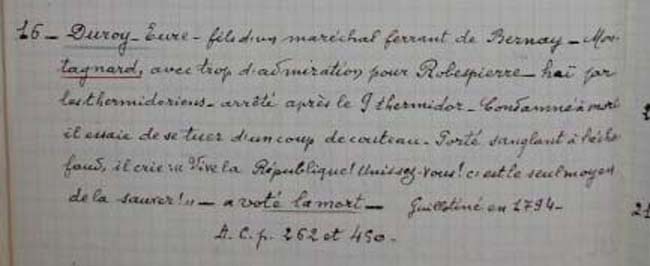 16 - Duroy - Eure - fils d'un maréchal ferrant de Bernay - Mon-
tagnard, avec trop d'admiration pour Robespierre - haï par
les thermidoriens - arrêté après le 9 thermidor - Condamné à mort
il essaie de se tuer d'un coup de couteau - Porté sanglant à l'écha
faud, il crie « Vive la République! Unissez-vous! c'est le seul moyen
de la sauver! » - a voté la mort - Guillotiné en 1794 -
A. C. p. 262 et 450 -
21